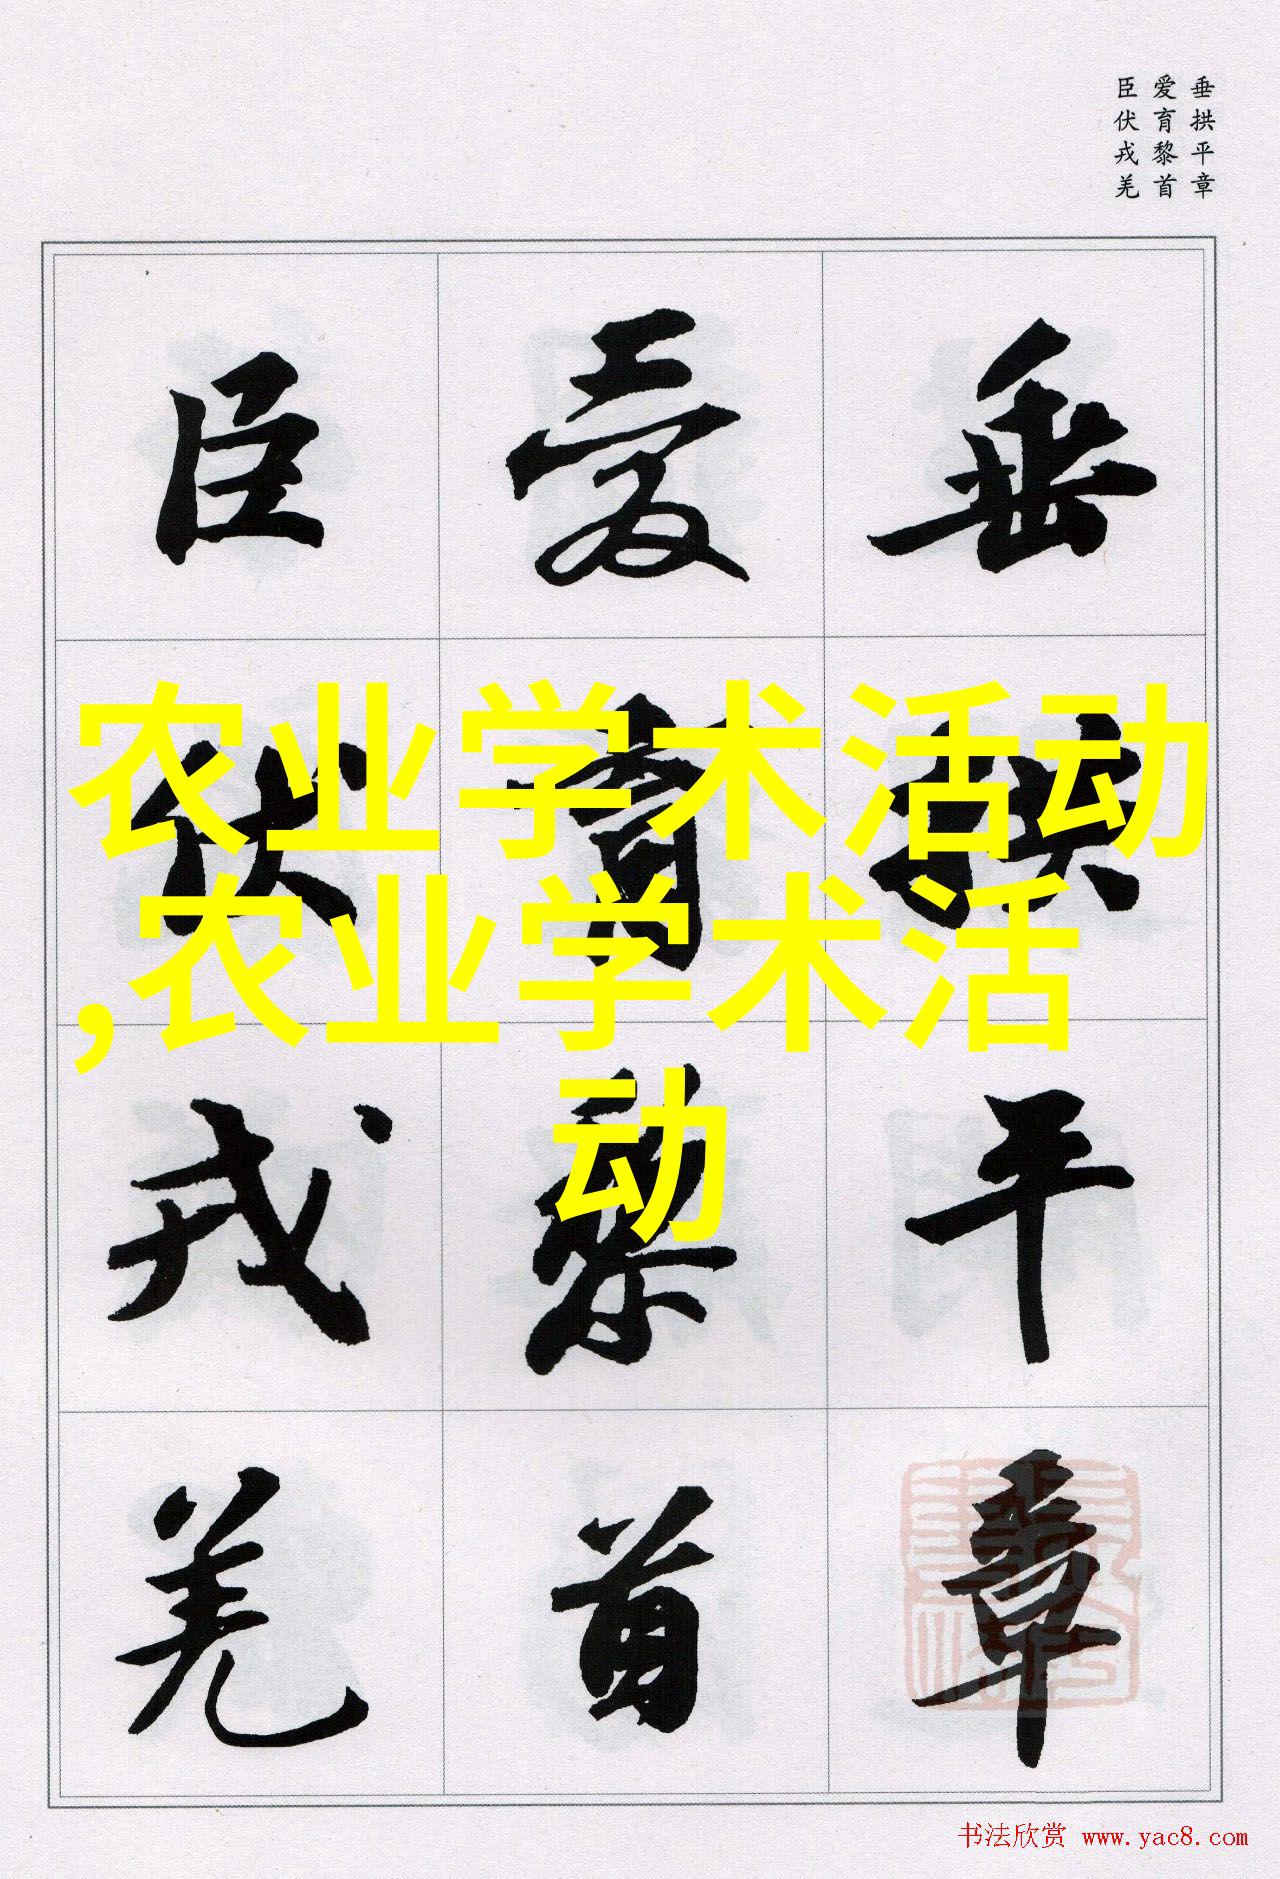 垂拱平章
爱育黎首
臣伏戎羌
垂拱平章
爱育黎首
臣伏戎羌
农业学术活动
,农业学术活
动
书法欣赏 www.yac8.com